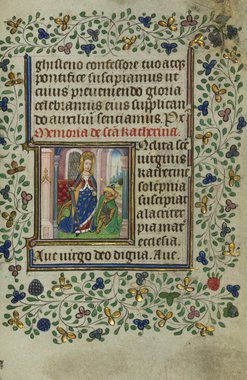 ghisleno confessore tuo atq;
pontifice suscipiamus ut
cuius preueniendo gloria
celebramus eius supplican
do auxiliu sentiamus. Px
Memoria de scā katherina.
sce
virginis
katerine
solepnia
suscipiat
alacriter
pia mat
ecclesia.
Aue virgo deo digna. Aue.